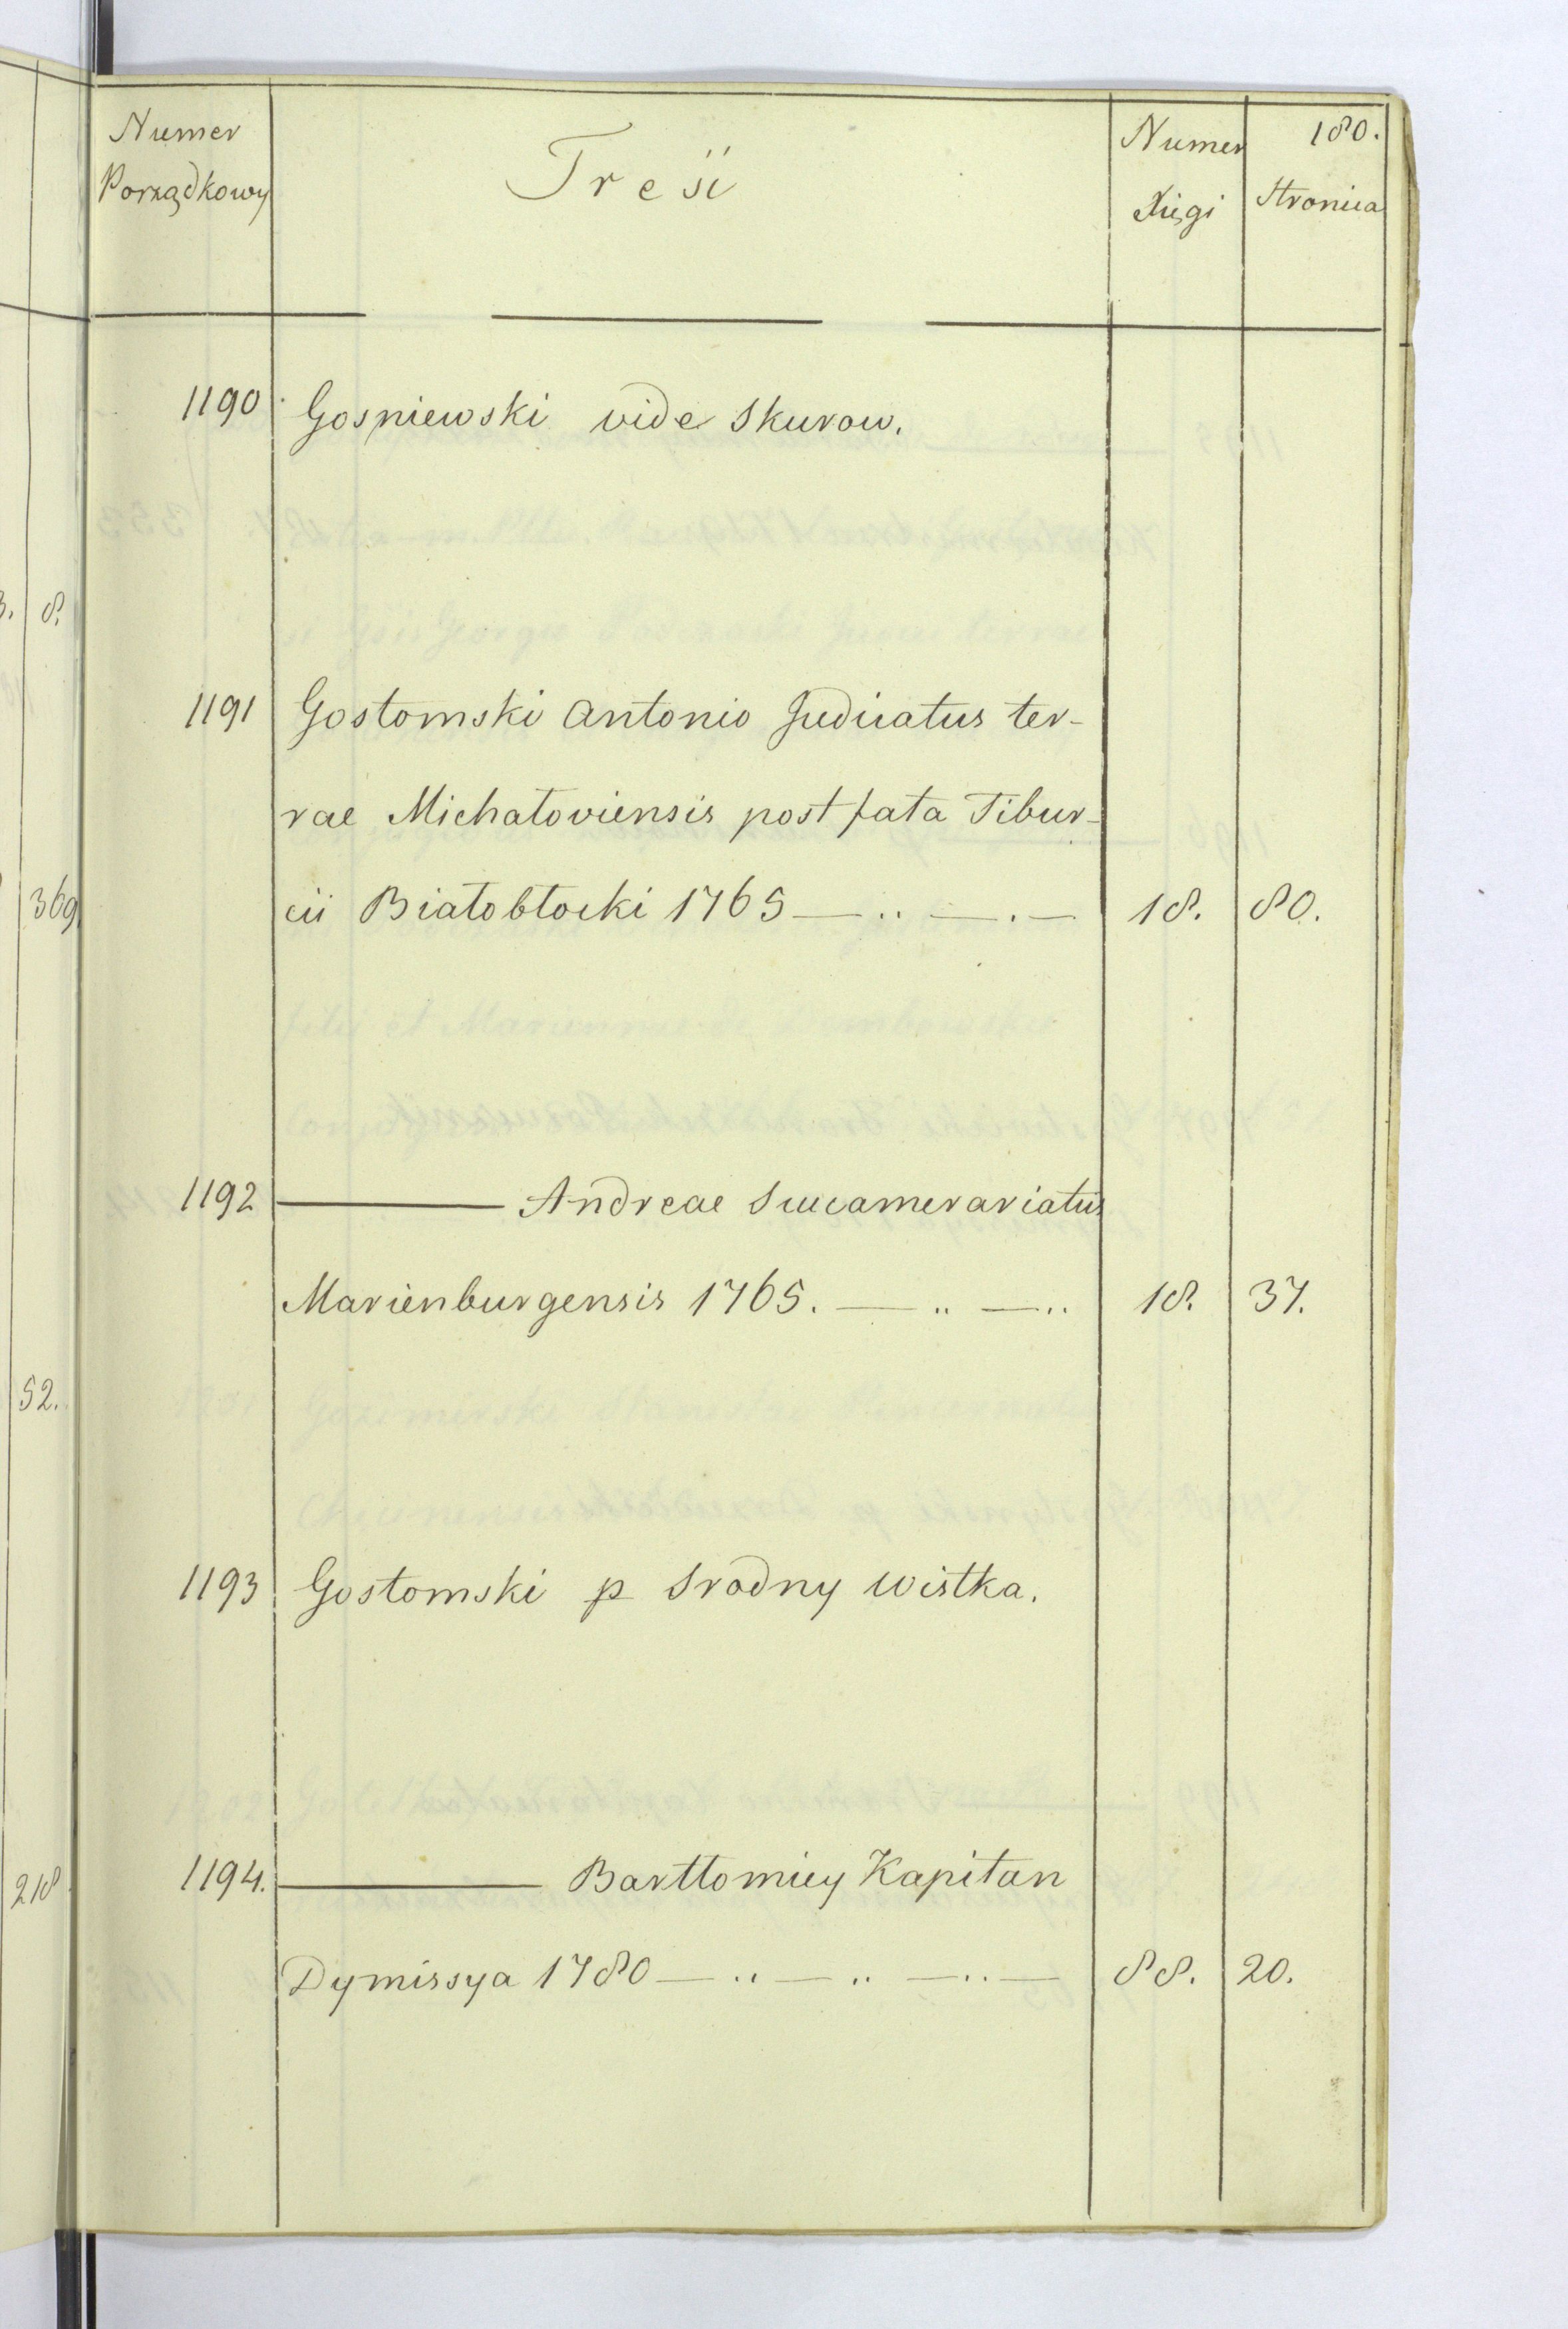 Numer Porządkowy
Treść
Numer Xięgi
180.
Stronica
1190 Gosniewski vide Skurow.
1191 Gostomski Antonio Judicatus ter-
rae Michałoviensis post fata Tibur-
cii Białobłocki 1765 — .. — . — 18. 80.
1192 ——— Andreae Succamerariatus
Marienburgensis 1765. — .. — .. 18. 37.
1193 Gostomski p Srodny Wistka.
1194. ——— Barttomiey Kapitan
Dymissya 1780 — .. — .. — .. — 88. 20.
8.
369
52.
218